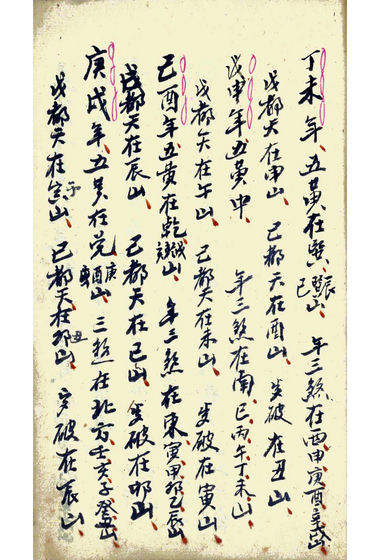 丁未年、五黄在巽、巽辰巳山、年三煞在西申庚酉辛山
戊都天在申山、己都天在酉山、岁破在丑山、
戊申年五黄中、年三煞在南、巳丙午丁未山、
戊都天在午山、己都天在未山、岁破在寅山、
己酉年五黄在乾戌亥山、年三煞在東寅甲卯乙辰山
戊都天在辰山、己都天在巳山、岁破在卯山、
庚戌年、五黄在兑庚酉辛山、三煞在北方壬亥子癸山
戊都天在子山、己都天在丑山、岁破在辰山、